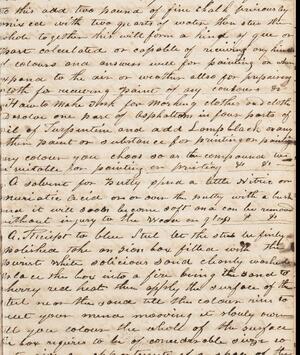 to this add two pound of fine chalk previously
mixed with two quarts of water then stir the
whole together hit will form a kind of glue or
part calculated or capable of reviving any kind
of colours and answers well for painting or when
exposed to the air or weather also for preparing
cloth for receiving paint of any colours &c
How to make Ink for marking clothes or cloth
Desolve one part of Asphaltum in four parts of
oil of Turpentine and add Lampblack or any
other Paint or substance for printing or painting
any colour you choos so as the compound be
suitable for painting or printing
A solvent for Putty spred a little Nitric or
muriatic Acid on or over the Putty with a brush
and it will soon become soft and can be removed
without injury to the Wood or glass
A Receipt to blue Steel let the steel be finely
polished take an iron box filled with the
purest white silicious sand cleanly washed
place the box into a fire bring the sand to
cherry red heat then apply the surface of the
steel near the sand till the colour rises to
suit your mind moveing it slowly over
till you colour the whole of the surface
the box requires to be of considerable surge